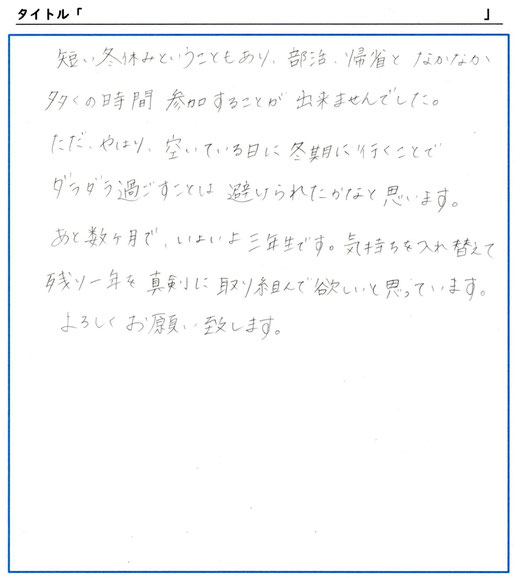 タイトル「 」
短い冬休みということもあり、部活、帰省と なかなか
多くの時間 参加することが 出来ませんでした。
ただ、やはり、空いている日に 冬期に行くことで
ダラダラ過ごすことは 避けられたかなと 思います。
あと数ヶ月で、いよいよ三年生です。気持ちを入れ替えて
残り一年を 真剣に 取り組んで欲しいと思っています。
よろしく お願い致します。